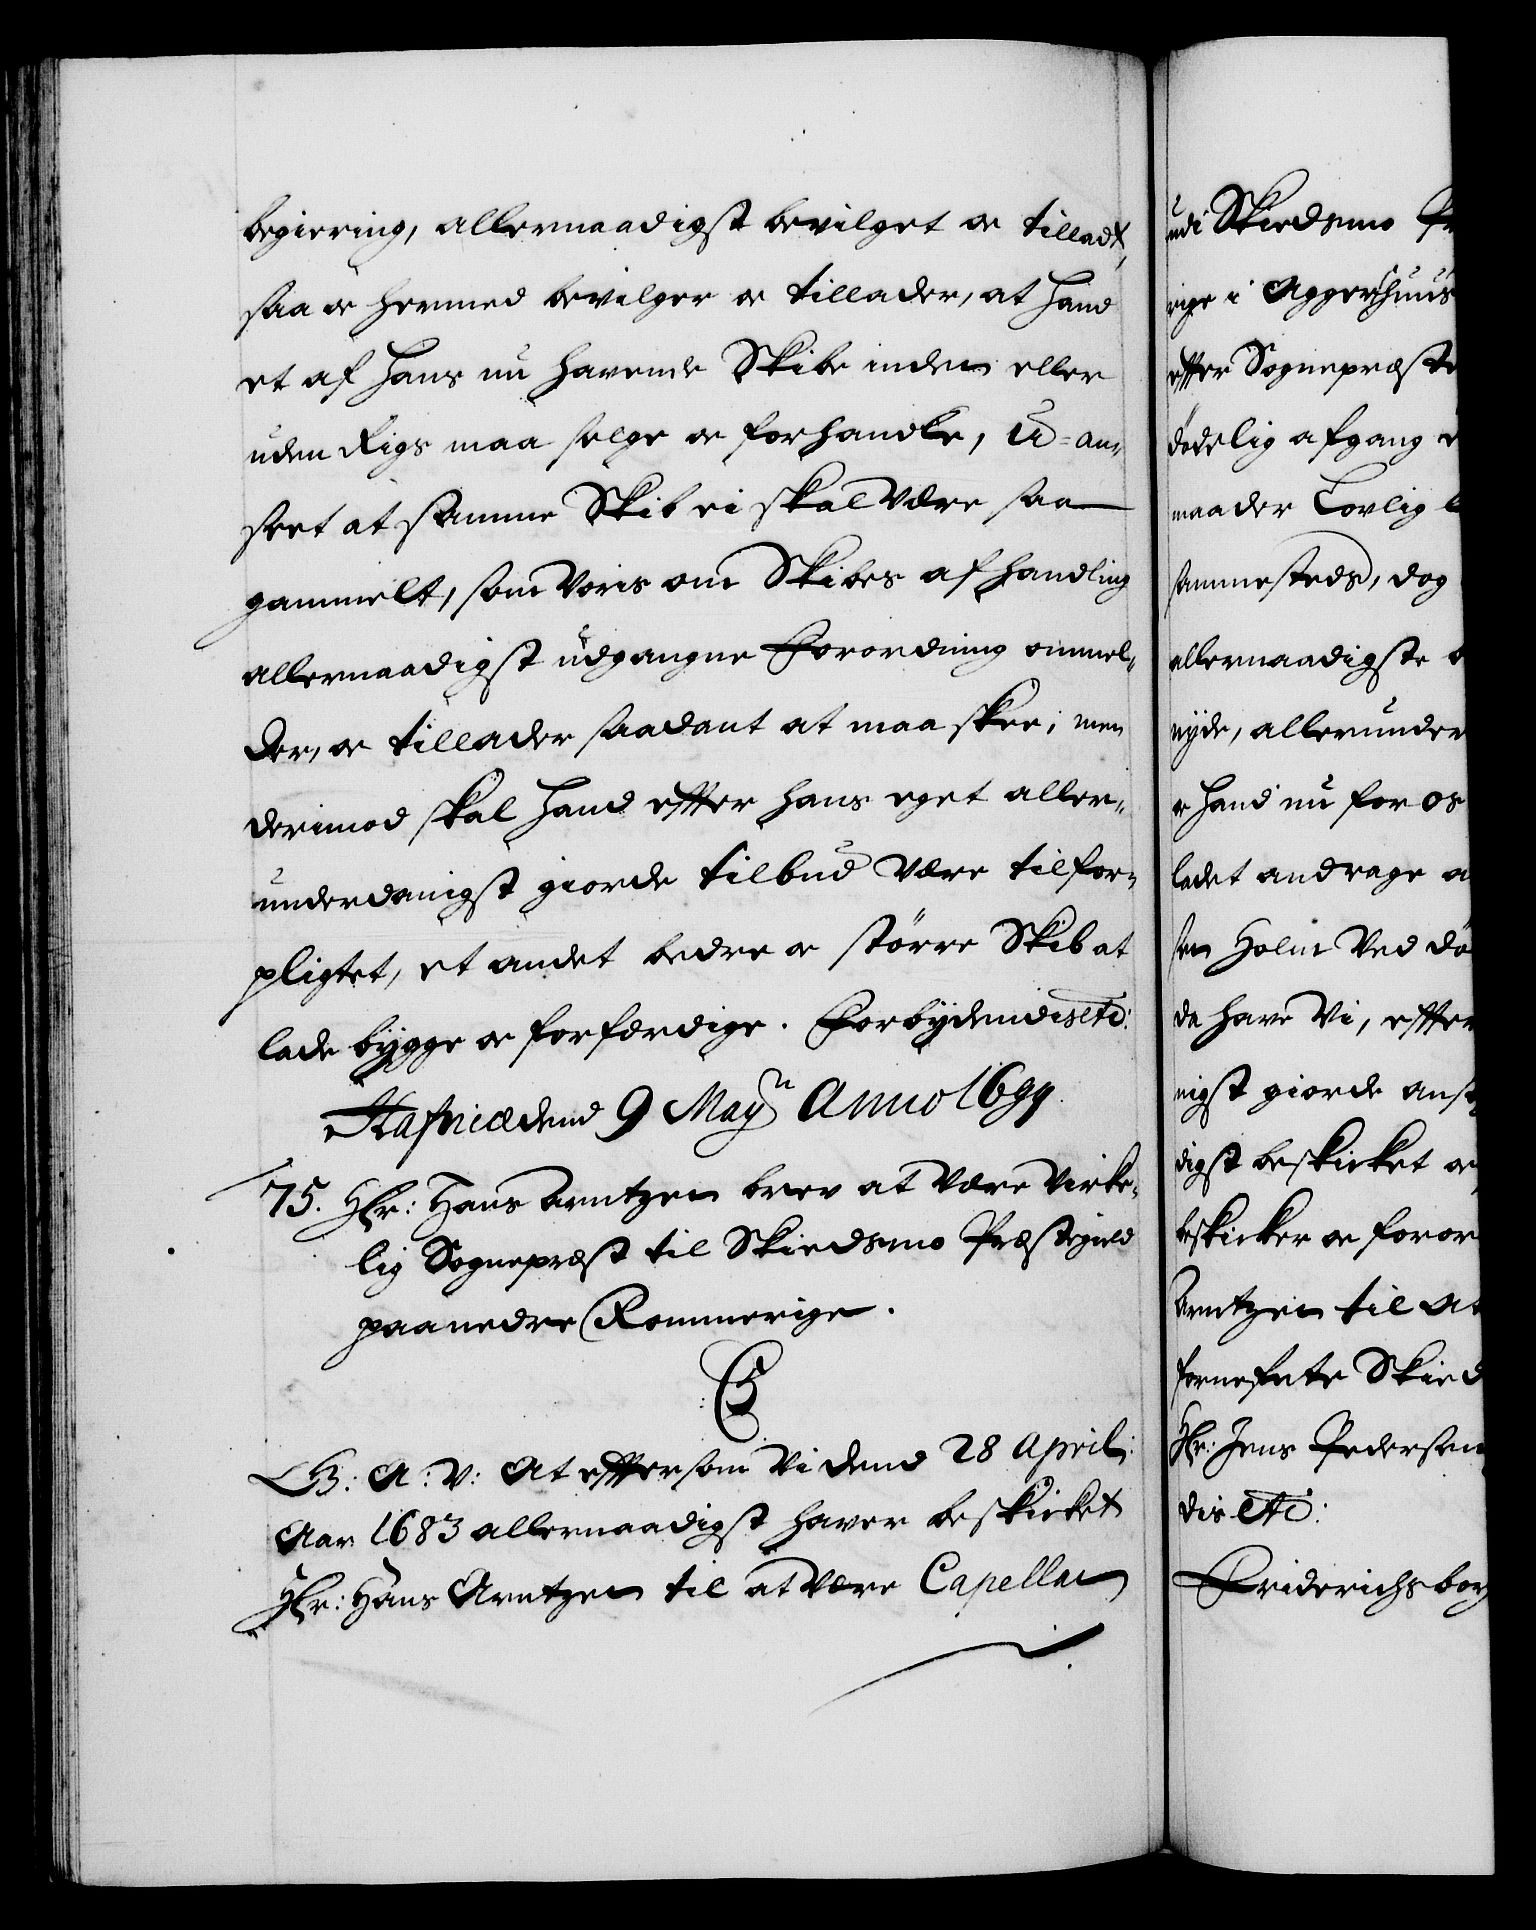 begiering, allernaadigst bevilget oc tilladt,
saa oc hermed bevilger oc tillader, at hand
et af hans nu havende Skibe inden eller
uden Rigs maa selge oc forhandle, U-an-
seet at samme Skib ei skal være saa
gammelt, som Voris om Skibes afhandling
allernaadigst udgangne Forordning ommel-
der, oc tillader saadant at maa skee; men
derimod skal hand effter hans eget aller-
underdanigst giorde tilbud være tilfor-
pligtet, et andet bedre oc større Skib at
lade bygge oc forfærdige. Forbydendis etc:
Hafniæ dend 9 Maij Anno 1699.
75. Hr: Hans Arntzen brev at være Virke-
lig Sognepræst til Skiedsmo Præstegield
paa nedre Rommerige.
C5
G: A: V: At efftersom Vi dend 28 April:
Aar 1683 allernaadigst haver beskicket
Hr: Hans Arntzen til at være Capellan
udi Skiedsmo Pr
rige i Aggershuus
effter Sognepræste
dødelig afgang
maader Lovlig
sammesteds, dog
allernaadigste
nyde, allerunder
hand nu for os
ladet andrage
sen Holm Ved dø
da have Vi, effter
nigst giorde ans
digst beskicket oc
beskicker oc foror
Arntzen til At
fornefnte Skied
Hr: Jens Pedersen
dis etc:
Friderichsborg